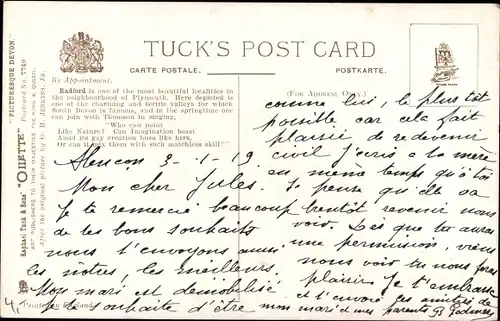 TUCK'S POST CARD
CARTE POSTALE.
POSTKARTE.
By Appointment.
(FOR ADDRESS ONLY.)
Radford is one of the most beautiful localities in
the neighbourhood of Plymouth. Here depicted is
one of the charming and fertile valleys for which
South Devon is famous, and in the springtime one
can join with Thomson in singing,
"Who can paint
Like Nature? Can Imagination boast
Amid its gay creation hues like hers,
Or can it mix them with such matchless skill?"
Raphael Tuck & Sons' "OILETTE" "PICTURESQUE DEVON." Postcard No. 7749
ART PUBLISHERS TO THEIR MAJESTIES THE KING & QUEEN.
After the original picture by G. H. JENKINS, Jr.
Printed in England
Alençon 3-1-19
Mon cher Jules.
Je te remercie beaucoup
de tes bons souhaits
nous t'envoyons aussi
les nôtres, les meilleurs.
Mon mari est démobilisé
je souhaite d'être
comme lui, le plus tôt
possible car cela fait
plaisir de redevenir
civil j'écris à ta mère
en même temps qu'à toi
Je pense qu'elle va
bientôt revenir nous
voir. Dès que tu auras
une permission, viens
nous voir tu nous feras
plaisir Je t'embrasse
et t'envoie les amitiés de
mon mari et mes parents
4,